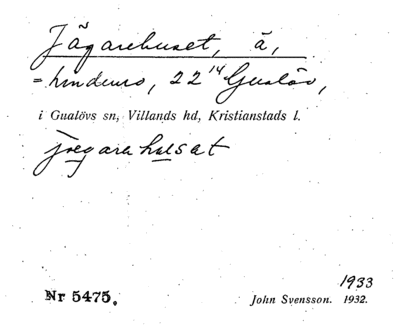 Jägarehuset, ä,
= 22¹⁴ Gualöv,
i Gualövs sn, Villands hd, Kristianstads l.
jægarahusat
1933
Nr 5475. John Svensson. 1932.